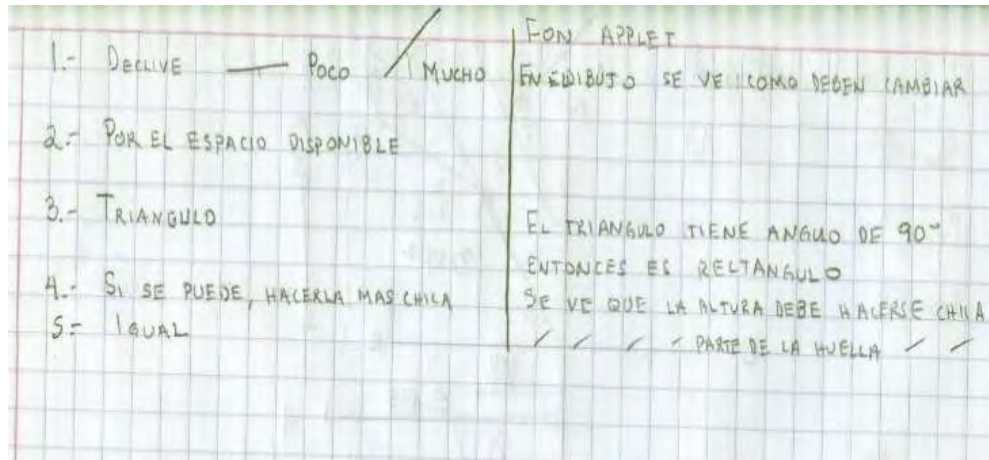 1.- DECLIVE — POCO / MUCHO
2.- POR EL ESPACIO DISPONIBLE
3.- TRIANGULO
4.- SI SE PUEDE, HACERLA MAS CHICA
5.- IGUAL
APPLET
SE VE COMO DEBEN CAMBIAR
EL TRIANGULO TIENE ANGULO DE 90°
ENTONCES ES RECTANGULO
SE VE QUE LA ALTURA DEBE HACERSE CHICA
/ / / / PARTE DE LA HUELLA / /